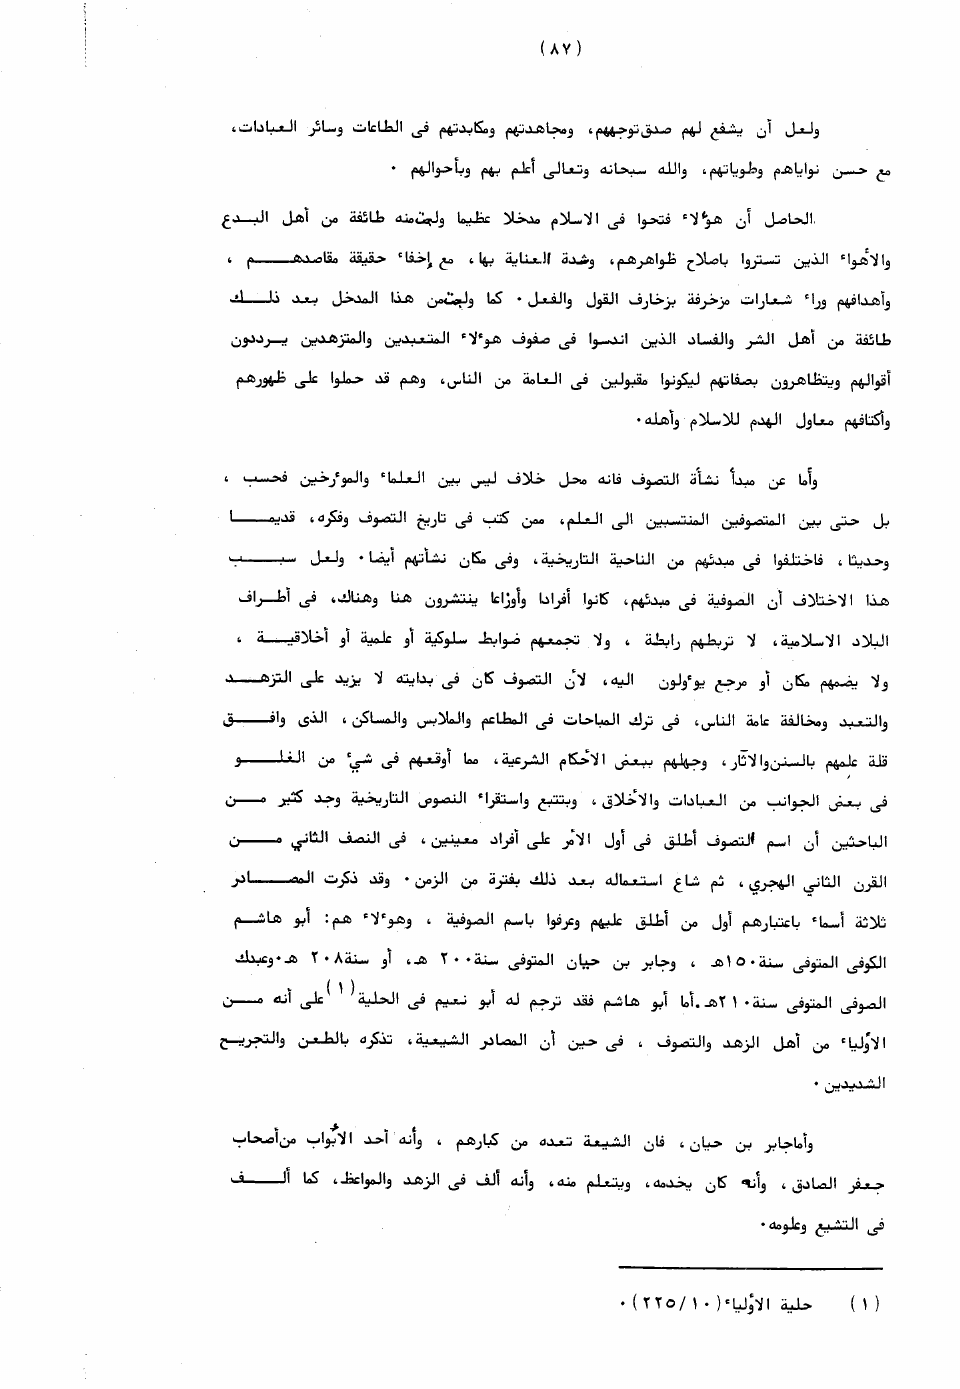 (٨٧)
ولعل أن يشفع لهم صدق توجههم، ومجاهدتهم ومكابدتهم فى الطاعات وسائر العبادات،
مع حسن نواياهم وطوياتهم، والله سبحانه وتعالى أعلم بهم وبأحوالهم ٠
الحاصل أن هؤلاء فتحوا فى الاسلام مدخلا عظيما ولج منه طائفة من أهل البدع
والأهواء الذين تستروا باصلاح ظواهرهم، وشدة العناية بها، مع إخفاء حقيقة مقاصدهـــم ،
وأهدافهم وراء شعارات مزخرفة بزخارف القول والفعل٠ كما ولج من هذا المدخل بعد ذلــك
طائفة من أهل الشر والفساد الذين اندسوا فى صفوف هؤلاء المتعبدين والمتزهدين يــرددون
أقوالهم ويتظاهرون بصفاتهم ليكونوا مقبولين فى العامة من الناس، وهم قد حملوا على ظهورهم
وأكتافهم معاول الهدم للاسلام وأهله٠
وأما عن مبدأ نشأة التصوف فانه محل خلاف ليس بين العلماء والمؤرخين فحسب ،
بل حتى بين المتصوفين المنتسبين الى العلم، ممن كتب فى تاريخ التصوف وفكره، قديمـــا
وحديثا ، فاختلفوا فى مبدئهم من الناحية التاريخية، وفى مكان نشأتهم أيضا٠ ولعل سبـــب
هذا الاختلاف أن الصوفية فى مبدئهم، كانوا أفرادا وأوزاعا ينتشرون هنا وهناك، فى أطــراف
البلاد الاسلامية، لا تربطهم رابطة ، ولا تجمعهم ضوابط سلوكية أو علمية أو أخلاقيــة ،
ولا يضمهم مكان أو مرجع يوءولون اليه، لأن التصوف كان فى بدايته لا يزيد على التزهــد
والتعبد ومخالفة عامة الناس، فى ترك المباحات فى المطاعم والملابس والمساكن، الذى وافــق
قلة علمهم بالسنن والآثار، وجهلهم ببعض الأحكام الشرعية، مما أوقعهم فى شيء من الغلـــو
فى بعض الجوانب من العبادات والأخلاق ، وبتتبع واستقراء النصوص التاريخية وجد كثير مــن
الباحثين أن اسم التصوف أطلق فى أول الأمر على أفراد معينين، فى النصف الثاني مـــن
القرن الثاني الهجري، ثم شاع استعماله بعد ذلك بفترة من الزمن٠ وقد ذكرت المصــادر
ثلاثة أسماء باعتبارهم أول من أطلق عليهم وعرفوا باسم الصوفية ، وهؤلاء هم: أبو هاشــم
الكوفى المتوفى سنة١٥٠هـ ، وجابر بن حيان المتوفى سنة٢٠٠ هـ، أو سنة٢٠٨ هـ٠وعبدك
الصوفى المتوفى سنة٢١٠هـ.أما أبو هاشم فقد ترجم له أبو نعيم فى الحلية(١)على أنه مـــن
الأولياء من أهل الزهد والتصوف ، فى حين أن المصادر الشيعية، تذكره بالطعن والتجريــح
الشديدين ٠
وأماجابر بن حيان، فان الشيعة تعده من كبارهم ، وأنه أحد الأبواب من أصحاب
جعفر الصادق، وأنه كان يخدمه، ويتعلم منه، وأنه ألف فى الزهد والمواعظ، كما ألـــف
فى التشيع وعلومه٠
(١) حلية الأولياء(٢٢٥/١٠)٠